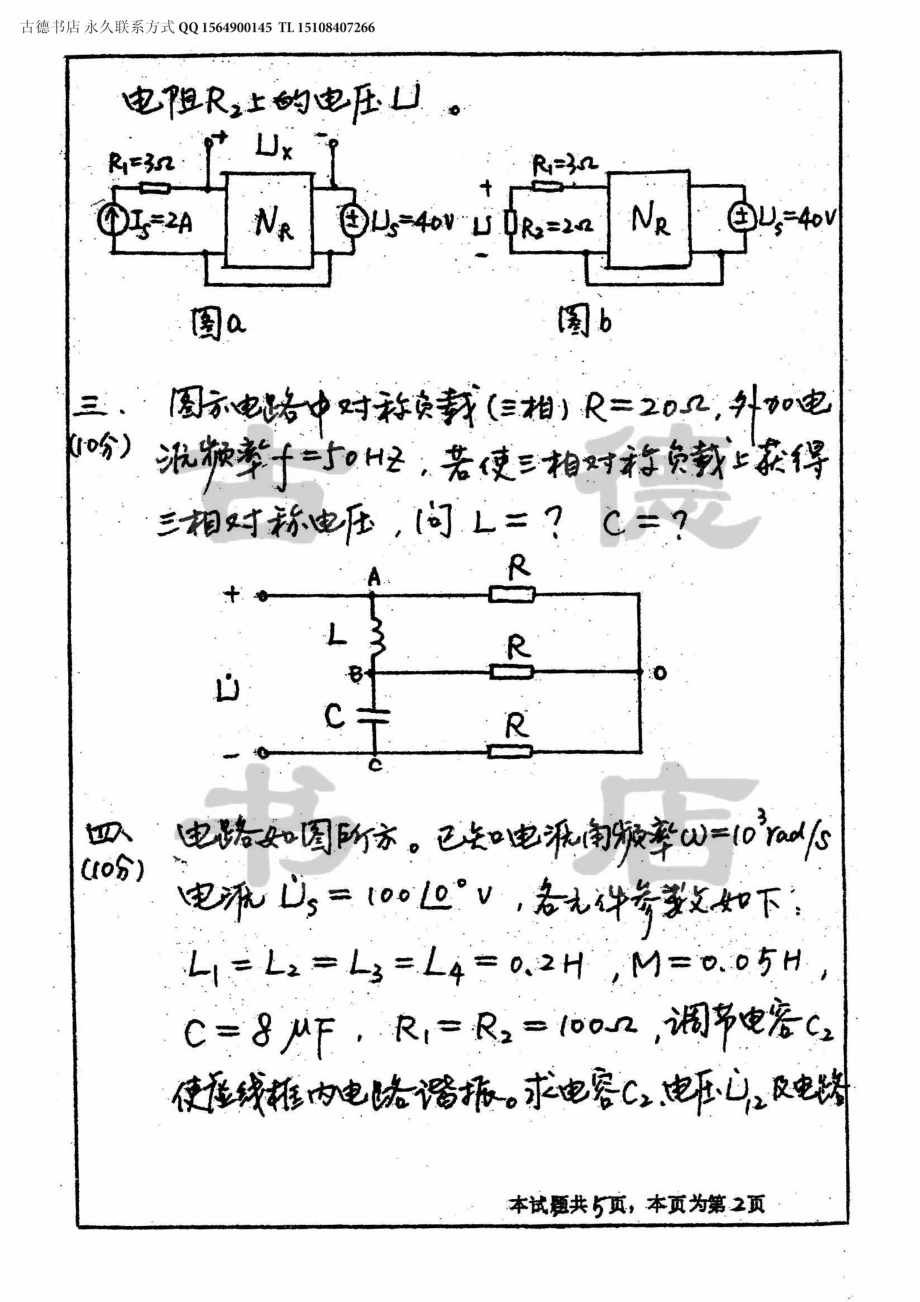 古德书店 永久联系方式 QQ 1564900145 TL 15108407266
电阻R₂上的电压U。
+ Uₓ -
R₁=3Ω
I_S=2A
N_R
U_S=40V
图a
+ U -
R₁=3Ω
R₂=2Ω
N_R
U_S=40V
图b
三. 图示电路中对称负载(三相)R=20Ω,外加电
(10分) 源频率f=50HZ,若使三相对称负载上获得
三相对称电压,问 L=? C=?
+ A R
L
B R O
U̇
C
- C R
四、电路如图所示。已知电源角频率ω=10³rad/s
(10分)
电源 U̇_S=100∠0° V,各元件参数如下:
L₁=L₂=L₃=L₄=0.2H,M=0.05H,
C=8μF,R₁=R₂=100Ω,调节电容C₂
使虚线框内电路谐振。求电容C₂、电压U̇₁₂及电路
本试题共5页,本页为第2页
古德
书店